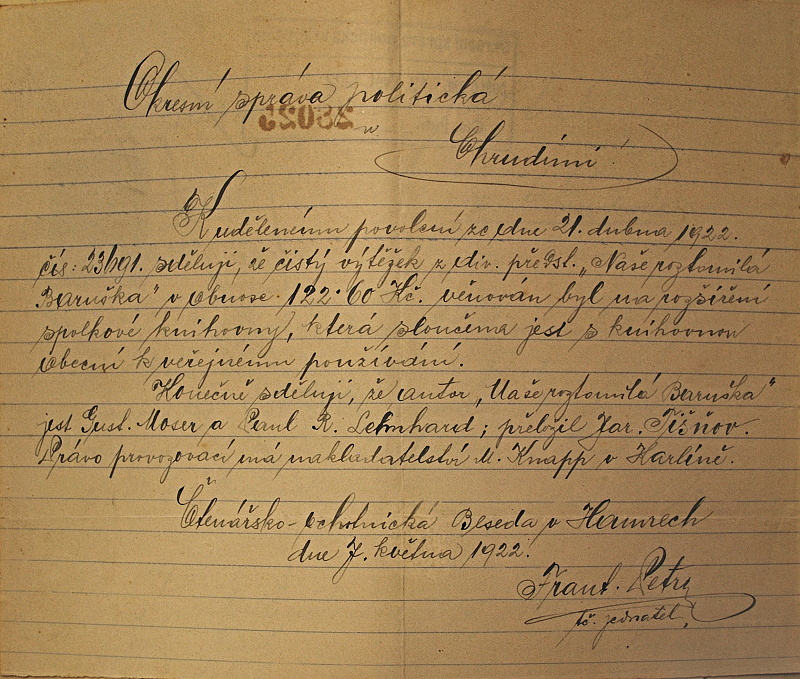 Okresní správa politická
23025
v
Chrudimi!
K udělenému povolení ze dne 21. dubna 1922.
čís: 23691. sděluji, že čistý výtěžek z div. předst. „Naše roztomilá
Baruška" v obnose 122·60 Kč. věnován byl na rozšíření
spolkové knihovny, která sloučena jest s knihovnou
obecní k veřejnému používání.
Konečně sděluji, že autor „Naše roztomilá Baruška"
jest Gust. Moser a Paul R. Lehnhard; přeložil Jar. Tišňov.
Právo provozovací má nakladatelství M. Knapp v Karlíně.
Čtenářsko-ochotnická Beseda v Hamrech
dne 7. května 1922.
Frant. Petry
tč. jednatel,